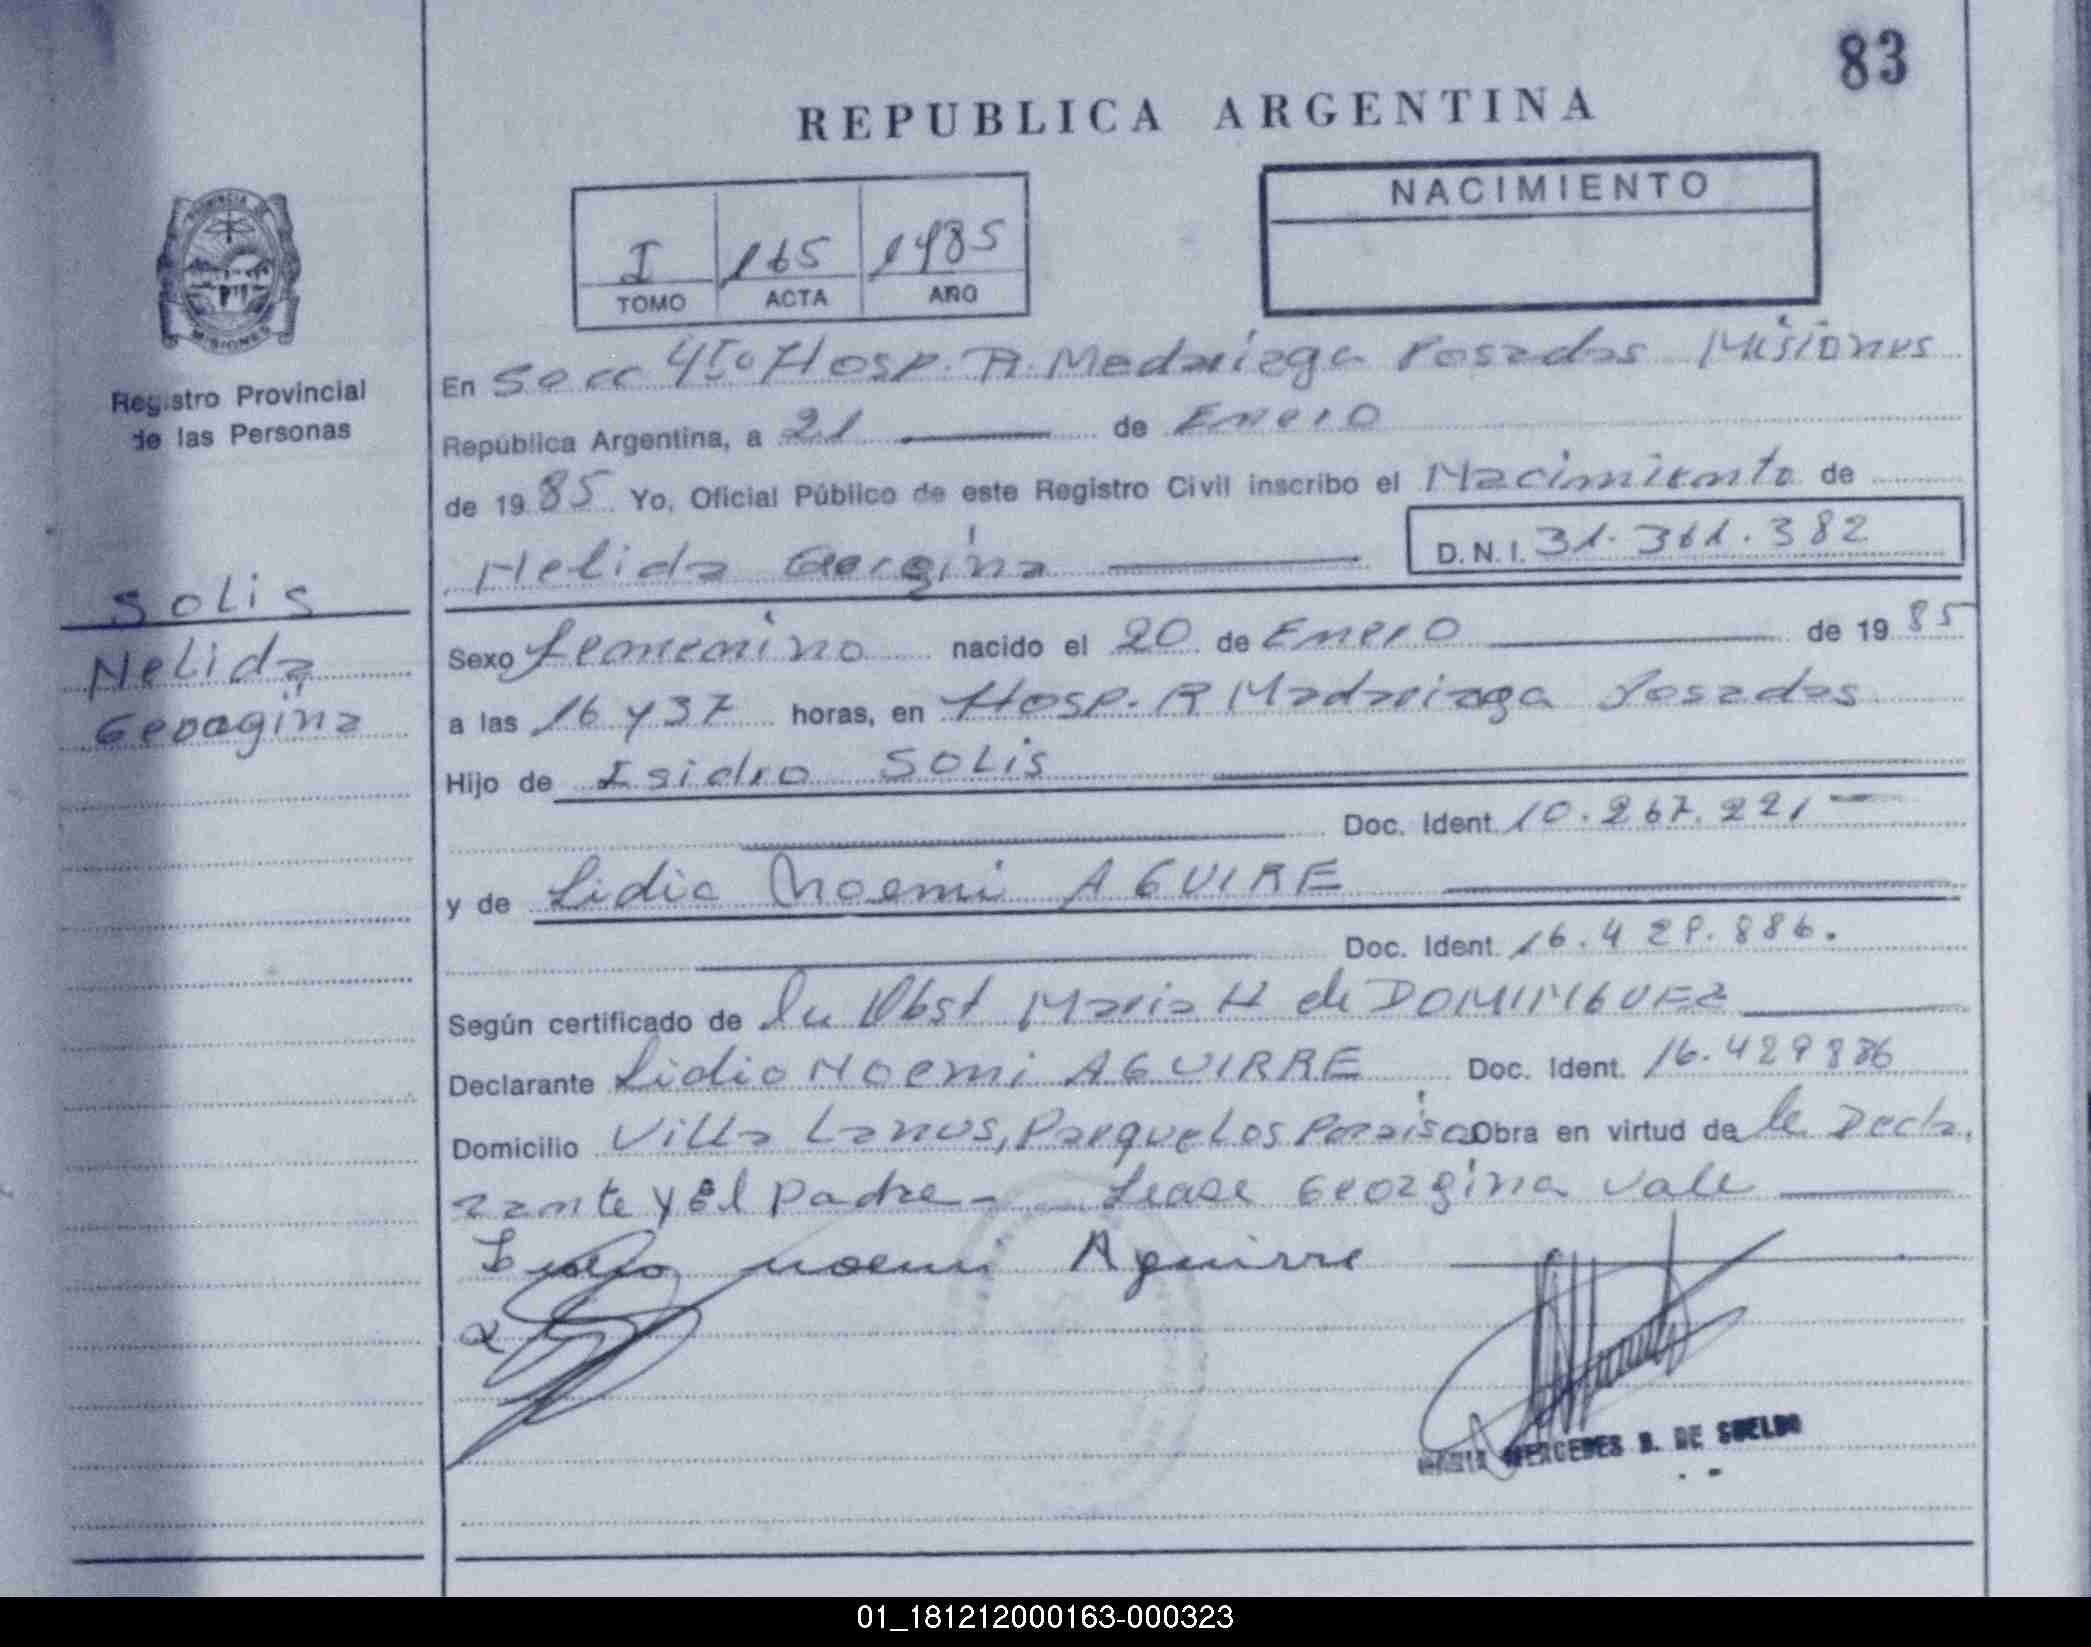 83
REPUBLICA ARGENTINA
NACIMIENTO
I 165 1985
TOMO ACTA AÑO
PROVINCIA DE
MISIONES
Registro Provincial
de las Personas
SOLIS
Nelida
Georgina
En Secc 4ta Hosp. R. Madariaga Posadas Misiones
República Argentina, a 21 de Enero
de 1985 Yo, Oficial Público de este Registro Civil inscribo el Nacimiento de
Nelida Gergina D.N.I. 31.361.382
Sexo femenino nacido el 20 de Enero de 1985
a las 16 y 37 horas, en Hosp. R Madariaga Posadas
Hijo de Isidro SOLIS
Doc. Ident. 10.267.221
y de Lidia Noemi AGUIRE
Doc. Ident. 16.429.886.
Según certificado de la Obst Maria H de DOMINGUEZ
Declarante Lidia NOEMI AGUIRRE Doc. Ident. 16.429886
Domicilio Villa Lanus, Parque Los Paraiso Obra en virtud de la Decla
rante y El Padre - Lease Georgina Vale
Lidia noemi Aguirre
MARIA MERCEDES B. DE SUELDO
01_181212000163-000323